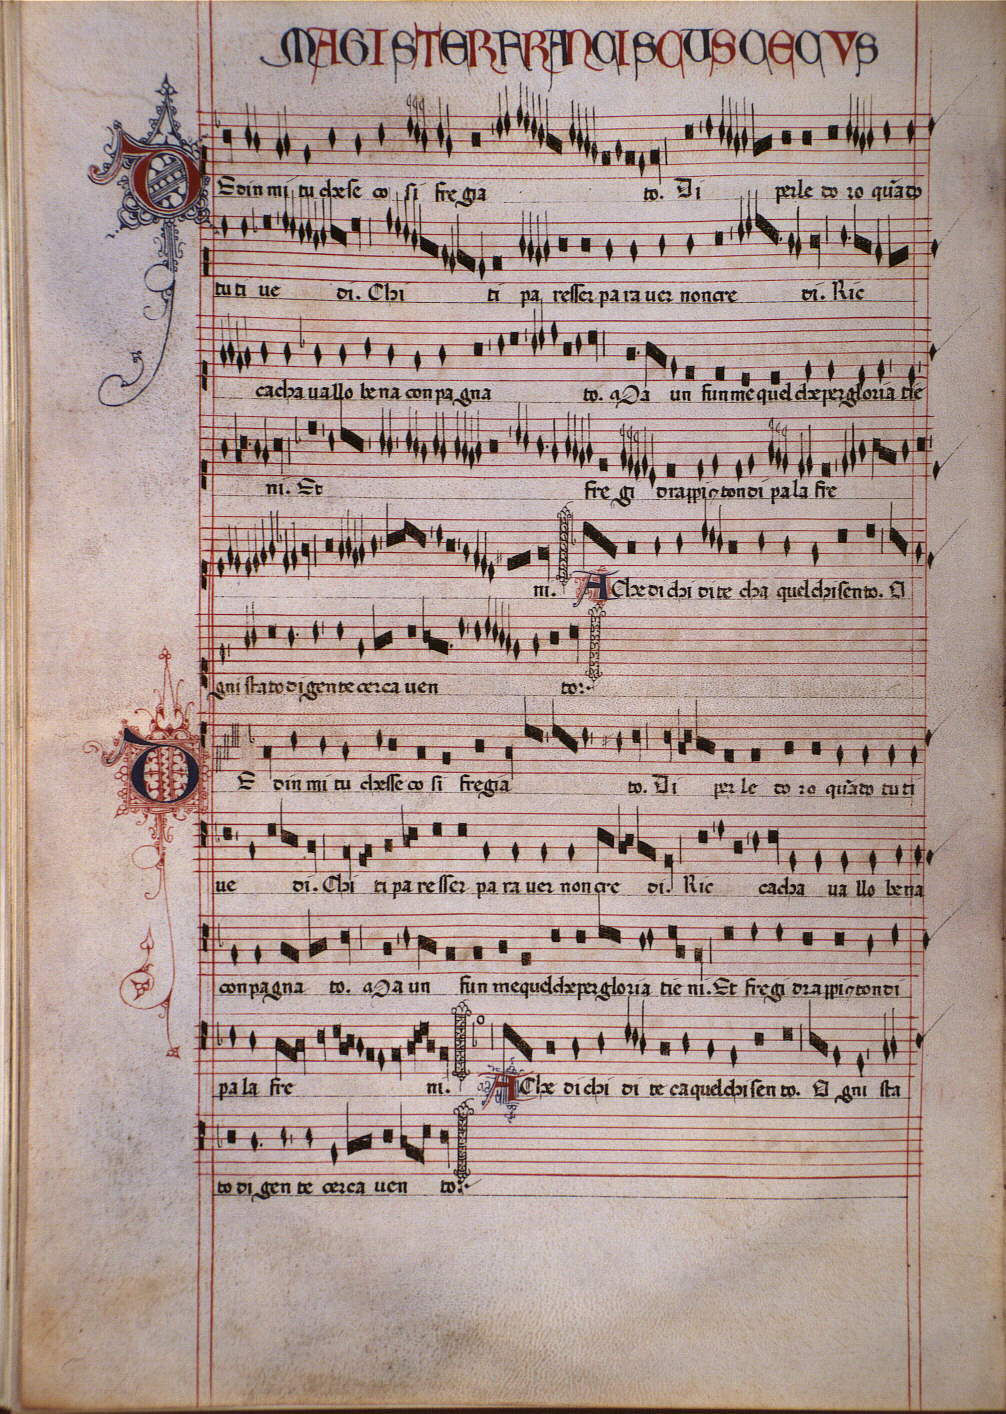 MAGISTER FRANCISCUS CECVS
DE din mi tu che se co si fre gia to. Di per le to ro quãdo
tu ti ve di. Chi ti pa resser pa ra ver non cre di. Ric
cacha va llo be na con pa gna to. Ma un fun me quel che per gloria tie
ni. Et fre gi drappi con di pa la fre
ni. A Che di chi di te cha quel chi sento. O
gni sta to di gen te cerca ven to.
DE din mi tu chesse co si fre gia to. Di per le to ro quãdo tu ti
ve di. Chi ti pa resser pa ra ver non cre di. Ric cacha va llo be na
con pa gna to. Ma un fun me quel che per glo ria tie ni. Et fre gi drappi con di
pa la fre ni. A Che di chi di te ca quel chi sen to. O gni sta
to di gen te cerca ven to.